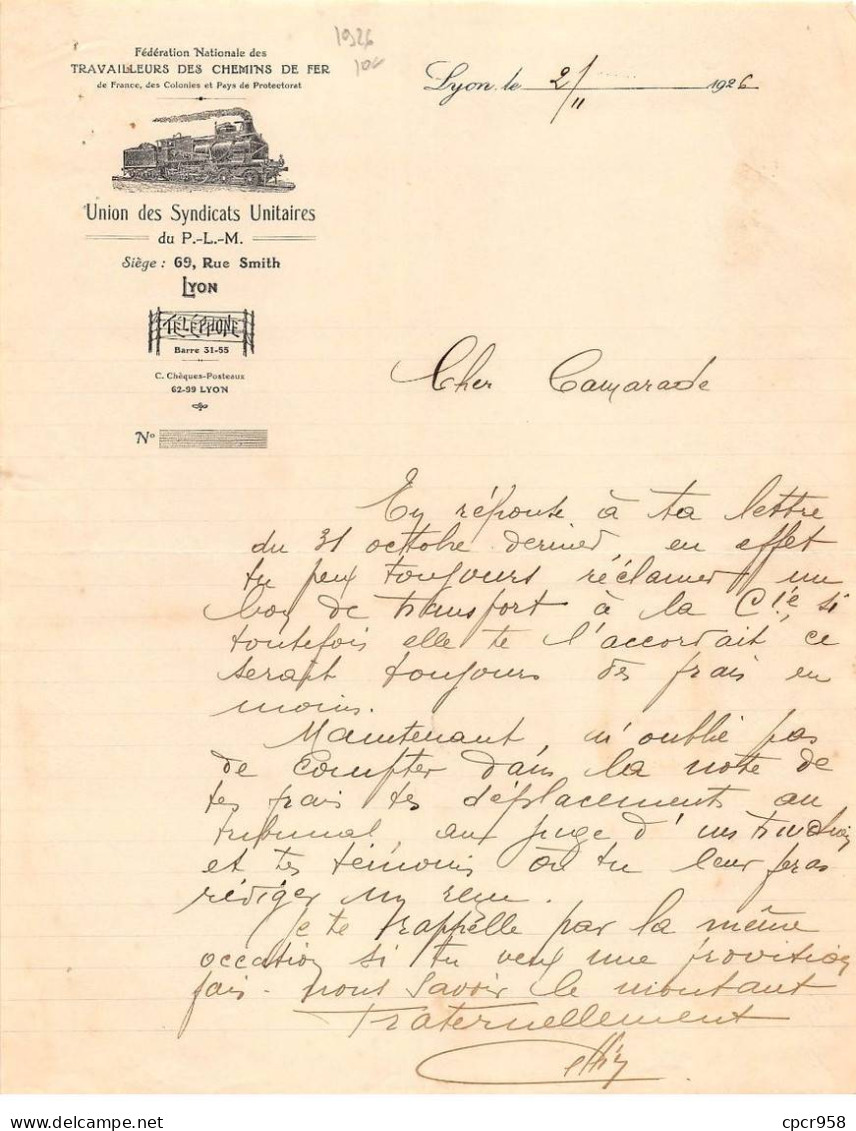 1926
Fédération Nationale des
TRAVAILLEURS DES CHEMINS DE FER
de France, des Colonies et Pays de Protectorat
Lyon, le 2/11 1926
Union des Syndicats Unitaires
du P.-L.-M.
Siège : 69, Rue Smith
LYON
TÉLÉPHONE
Barre 31-55
C. Chèques-Postaux
62-99 LYON
N°
Cher Camarade
En réponse à ta lettre
du 31 octobre dernier, en effet
tu peux toujours réclamer un
bon de transport à la Cie, si
toutefois elle te l'accordait ce
serait toujours des frais en
moins.
Maintenant, n'oublie pas
de compter dans la note de
tes frais tes déplacements au
tribunal au juge d'instruction
et tes témoins où tu leur feras
rédiger un reçu.
Je te rappelle par la même
occation si tu veux une provition
fais-nous savoir le montant
Fraternellement
cpcr958